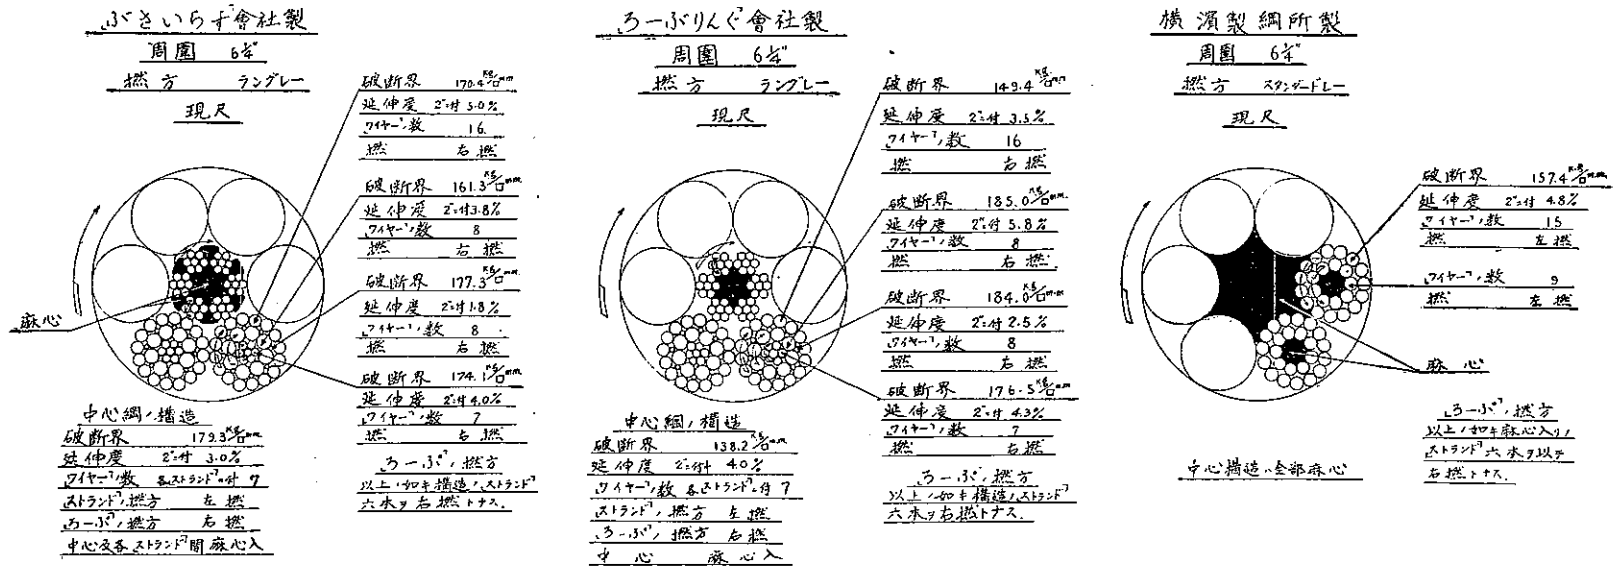 ぶさいらす會社製
周圍 6¼"
撚方 ラングレー
現尺
破断界 170.4 KG/□mm
延伸度 2"ニ付 5.0%
ワイヤーノ数 16
撚 右撚
破断界 161.3 KG/□mm
延伸度 2"ニ付 3.8%
ワイヤーノ数 8
撚 右撚
破断界 177.3 KG/□mm
延伸度 2"ニ付 1.8%
ワイヤーノ数 8
撚 右撚
破断界 174.1 KG/□mm
延伸度 2"ニ付 4.0%
ワイヤーノ数 7
撚 右撚
麻心
中心綱ノ構造
破断界 179.3 KG/□mm
延伸度 2"ニ付 3.0%
ワイヤーノ数 各ストランドニ付 7
ストランドノ撚方 左撚
ろーぷノ撚方 右撚
中心及各ストランド間麻心入
ろーぷノ撚方
以上ノ如キ構造ノストランド
六本ヲ右撚トナス.
ろーぶりんぐ會社製
周圍 6¼"
撚方 ラングレー
現尺
破断界 149.4 KG/□mm
延伸度 2"ニ付 3.5%
ワイヤーノ数 16
撚 右撚
破断界 185.0 KG/□mm
延伸度 2"ニ付 5.8%
ワイヤーノ数 8
撚 右撚
破断界 184.0 KG/□mm
延伸度 2"ニ付 2.5%
ワイヤーノ数 8
撚 右撚
破断界 176.5 KG/□mm
延伸度 2"ニ付 4.3%
ワイヤーノ数 7
撚 右撚
中心綱ノ構造
破断界 138.2 KG/□mm
延伸度 2"ニ付 4.0%
ワイヤーノ数 各ストランドニ付 7
ストランドノ撚方 左撚
ろーぷノ撚方 右撚
中心 麻心入
ろーぷノ撚方
以上ノ如キ構造ノストランド
六本ヲ右撚トナス.
横濱製綱所製
周圍 6¼"
撚方 スタンダードレー
現尺
破断界 157.4 KG/□mm
延伸度 2"ニ付 4.8%
ワイヤーノ数 15
撚 左撚
ワイヤーノ数 9
撚 左撚
麻心
中心構造ハ全部麻心
ろーぷノ撚方
以上ノ如キ麻心入リノ
ストランド六本ヲ以テ
右撚トナス.